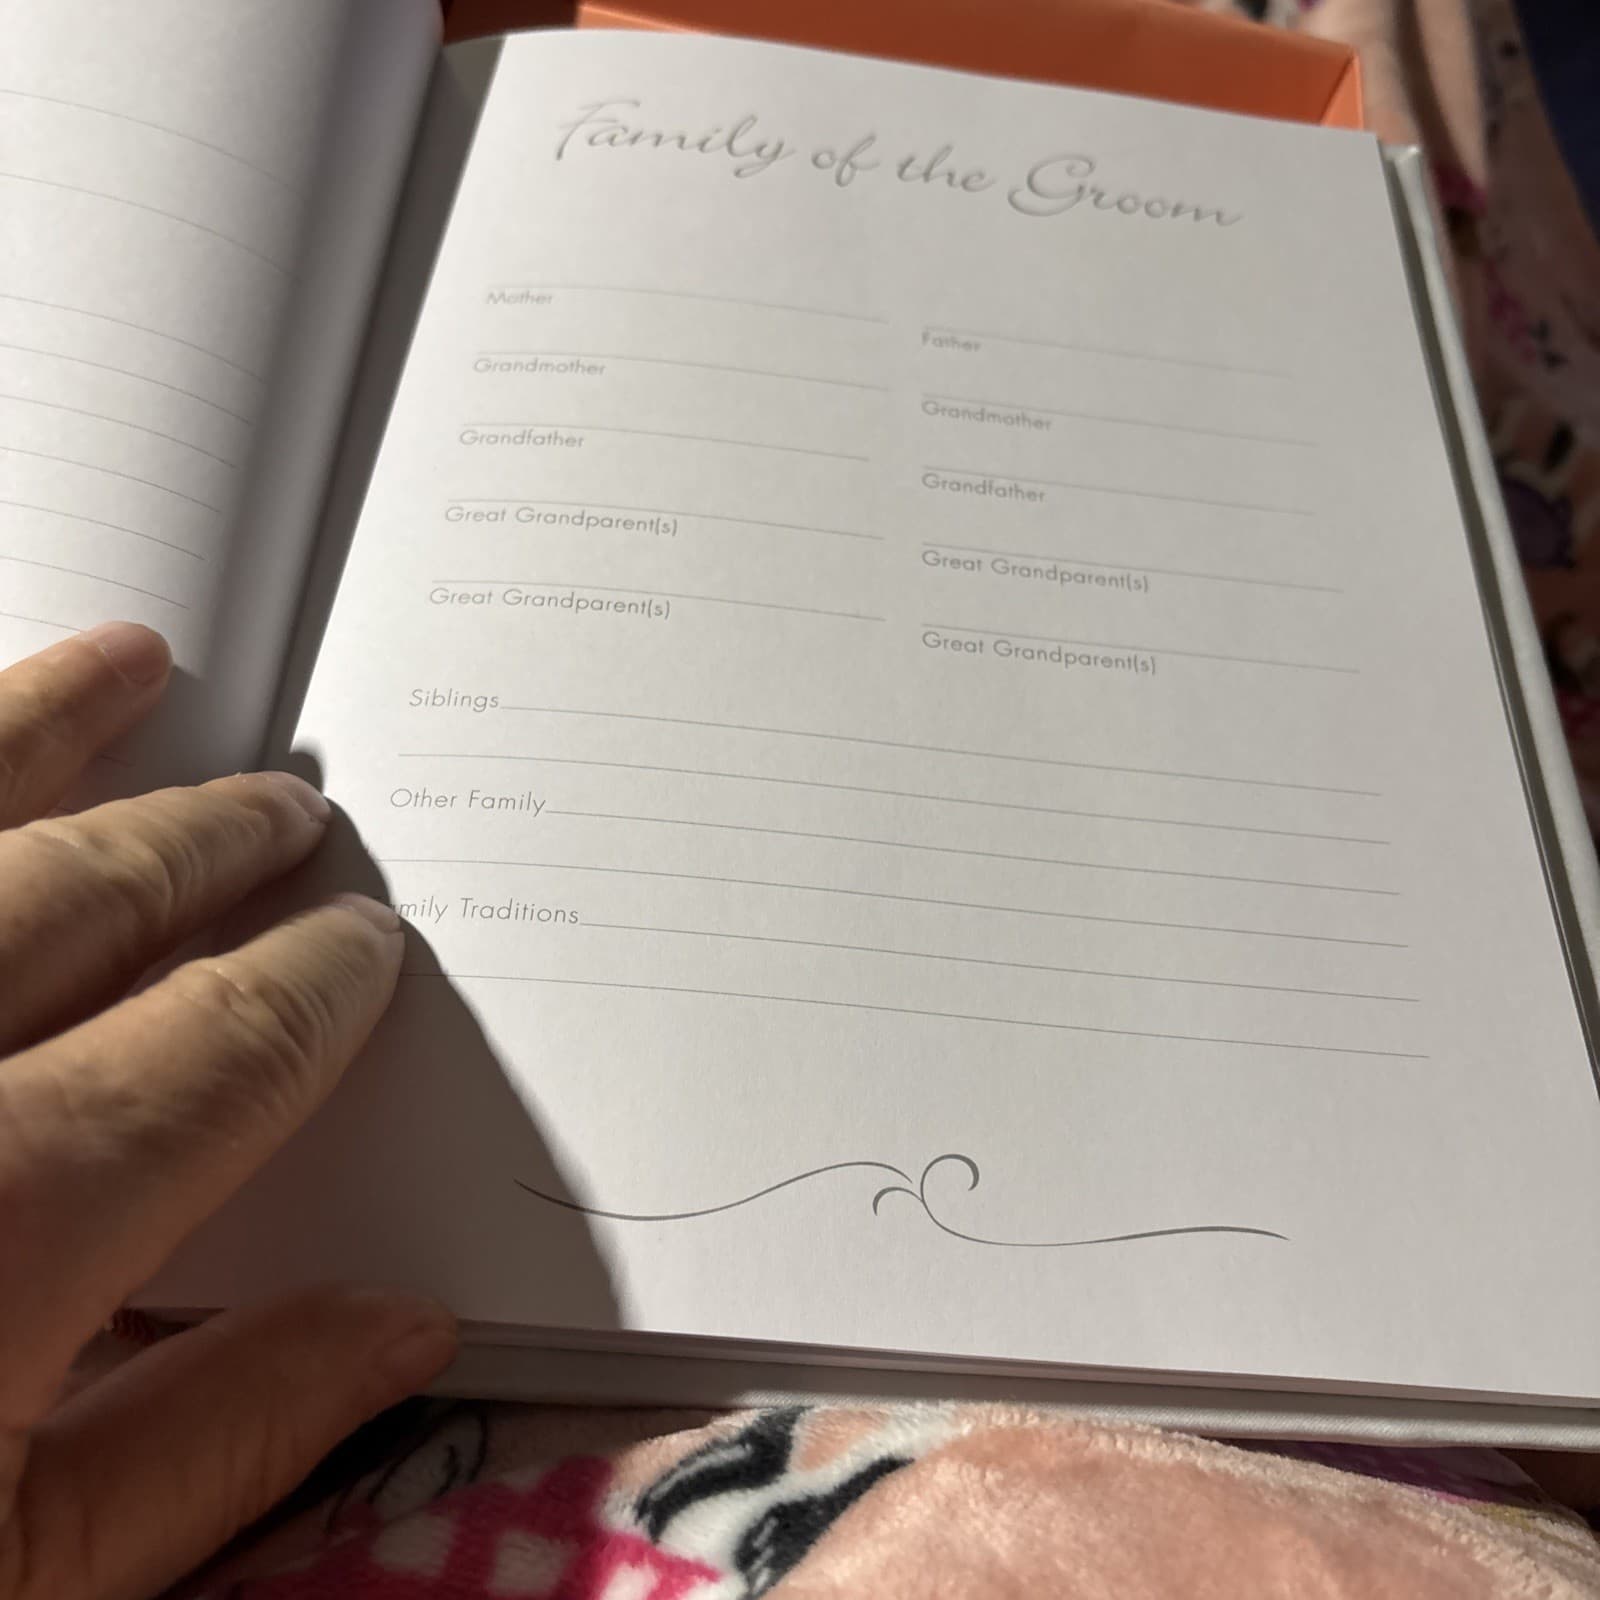 Family of the Groom
Mother
Father
Grandmother
Grandmother
Grandfather
Grandfather
Great Grandparent(s)
Great Grandparent(s)
Great Grandparent(s)
Great Grandparent(s)
Siblings
Other Family
mily Traditions